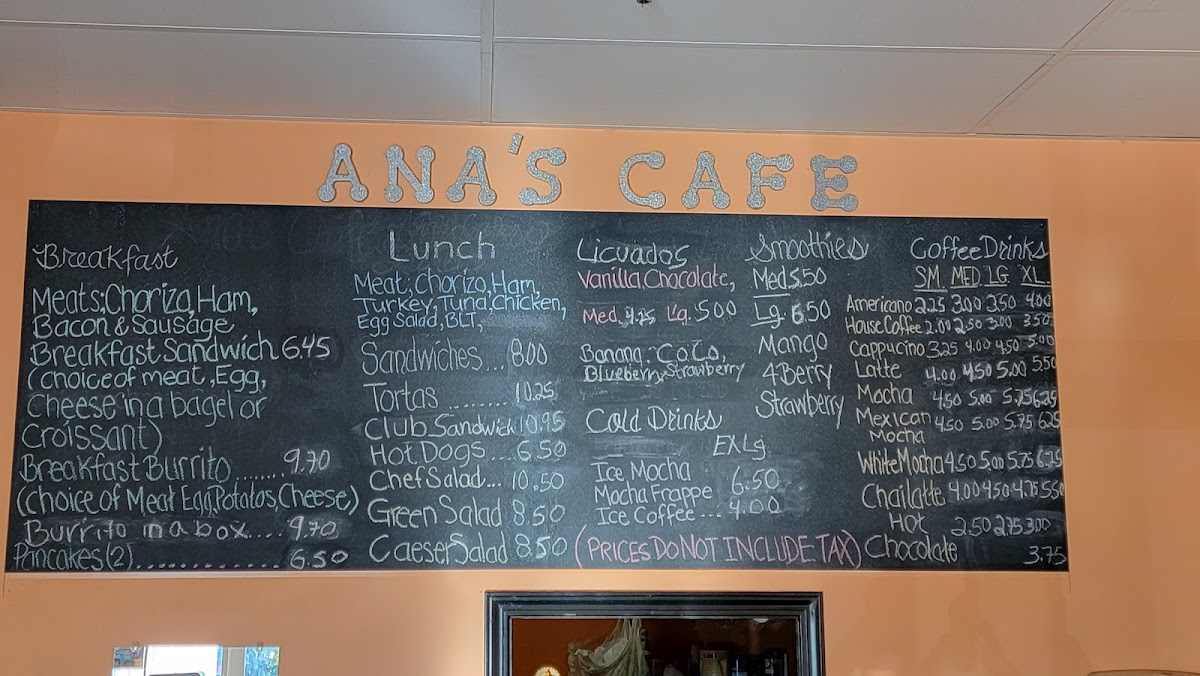 ANA'S CAFE
Breakfast
Meats: Chorizo, Ham,
Bacon & Sausage
Breakfast Sandwich 6.45
(choice of meat, Egg,
Cheese in a bagel or
Croissant)
Breakfast Burrito...... 9.70
(choice of Meat Egg, Potatos, Cheese)
Burrito in a box.... 9.70
Pancakes (2).............. 6.50
Lunch
Meat: Chorizo, Ham,
Turkey, Tuna, Chicken,
Egg Salad, BLT,
Sandwiches... 8.00
Tortas ......... 10.25
Club Sandwich 10.95
Hot Dogs... 6.50
Chef Salad... 10.50
Green Salad 8.50
Caeser Salad 8.50
Licuados
Vanilla, Chocolate,
Med. 4.25 Lg. 5.00
Banana, CoCo,
Blueberry, Strawberry
Cold Drinks
EX Lg.
Ice Mocha
Mocha Frappe 6.50
Ice Coffee... 4.00
(PRICES DO NOT INCLUDE TAX)
Smoothies
Med 5.50
Lg. 6.50
Mango
4-Berry
Strawberry
Coffee Drinks
SM MED LG XL
Americano 2.25 3.00 3.50 4.00
House Coffee 2.00 2.50 3.00 3.50
Cappucino 3.25 4.00 4.50 5.00
Latte 4.00 4.50 5.00 5.50
Mocha 4.50 5.00 5.75 6.25
Mexican 4.50 5.00 5.75 6.25
Mocha
White Mocha 4.50 5.00 5.75 6.25
Chai latte 4.00 4.50 4.75 5.50
Hot 2.50 2.75 3.00
Chocolate 3.75